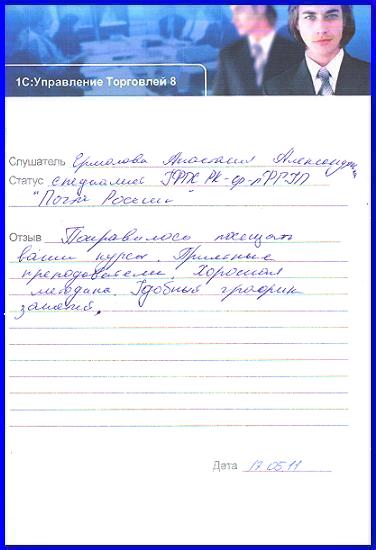 1С:Управление Торговлей 8
Слушатель Ермолова Анастасия Александр
Статус специалист РК-ф-л ФГУП
"Почта России"
Отзыв Понравилось посещать
ваши курсы. Приятные
преподаватели. Хорошая
методика. Удобный график
занятий.
Дата 17.05.11